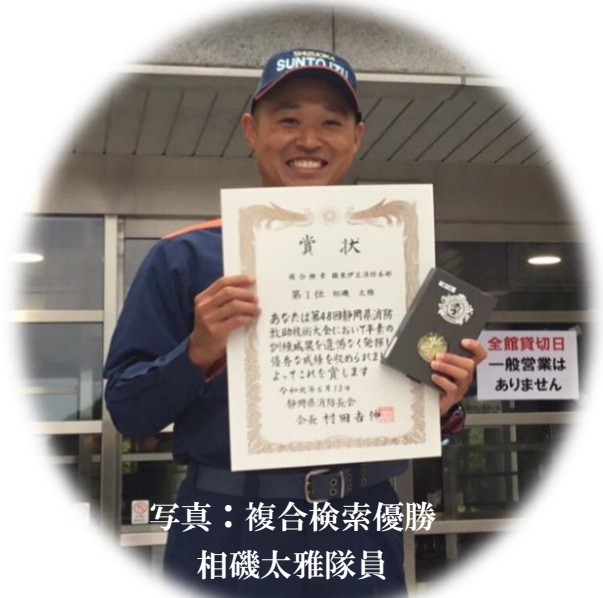 SHIZUOKA
SUNTO IZU
賞状
複合検索 駿東伊豆消防本部
第1位 相磯 太雅
あなたは第48回静岡県消防
救助技術大会において平素の
訓練成果を遺憾なく発揮し
優秀な成績を収められました
よってこれを賞します
令和元年6月13日
静岡県消防長会
会長 村田吉伸
全館貸切日
一般営業は
ありません
写真：複合検索優勝
相磯太雅隊員